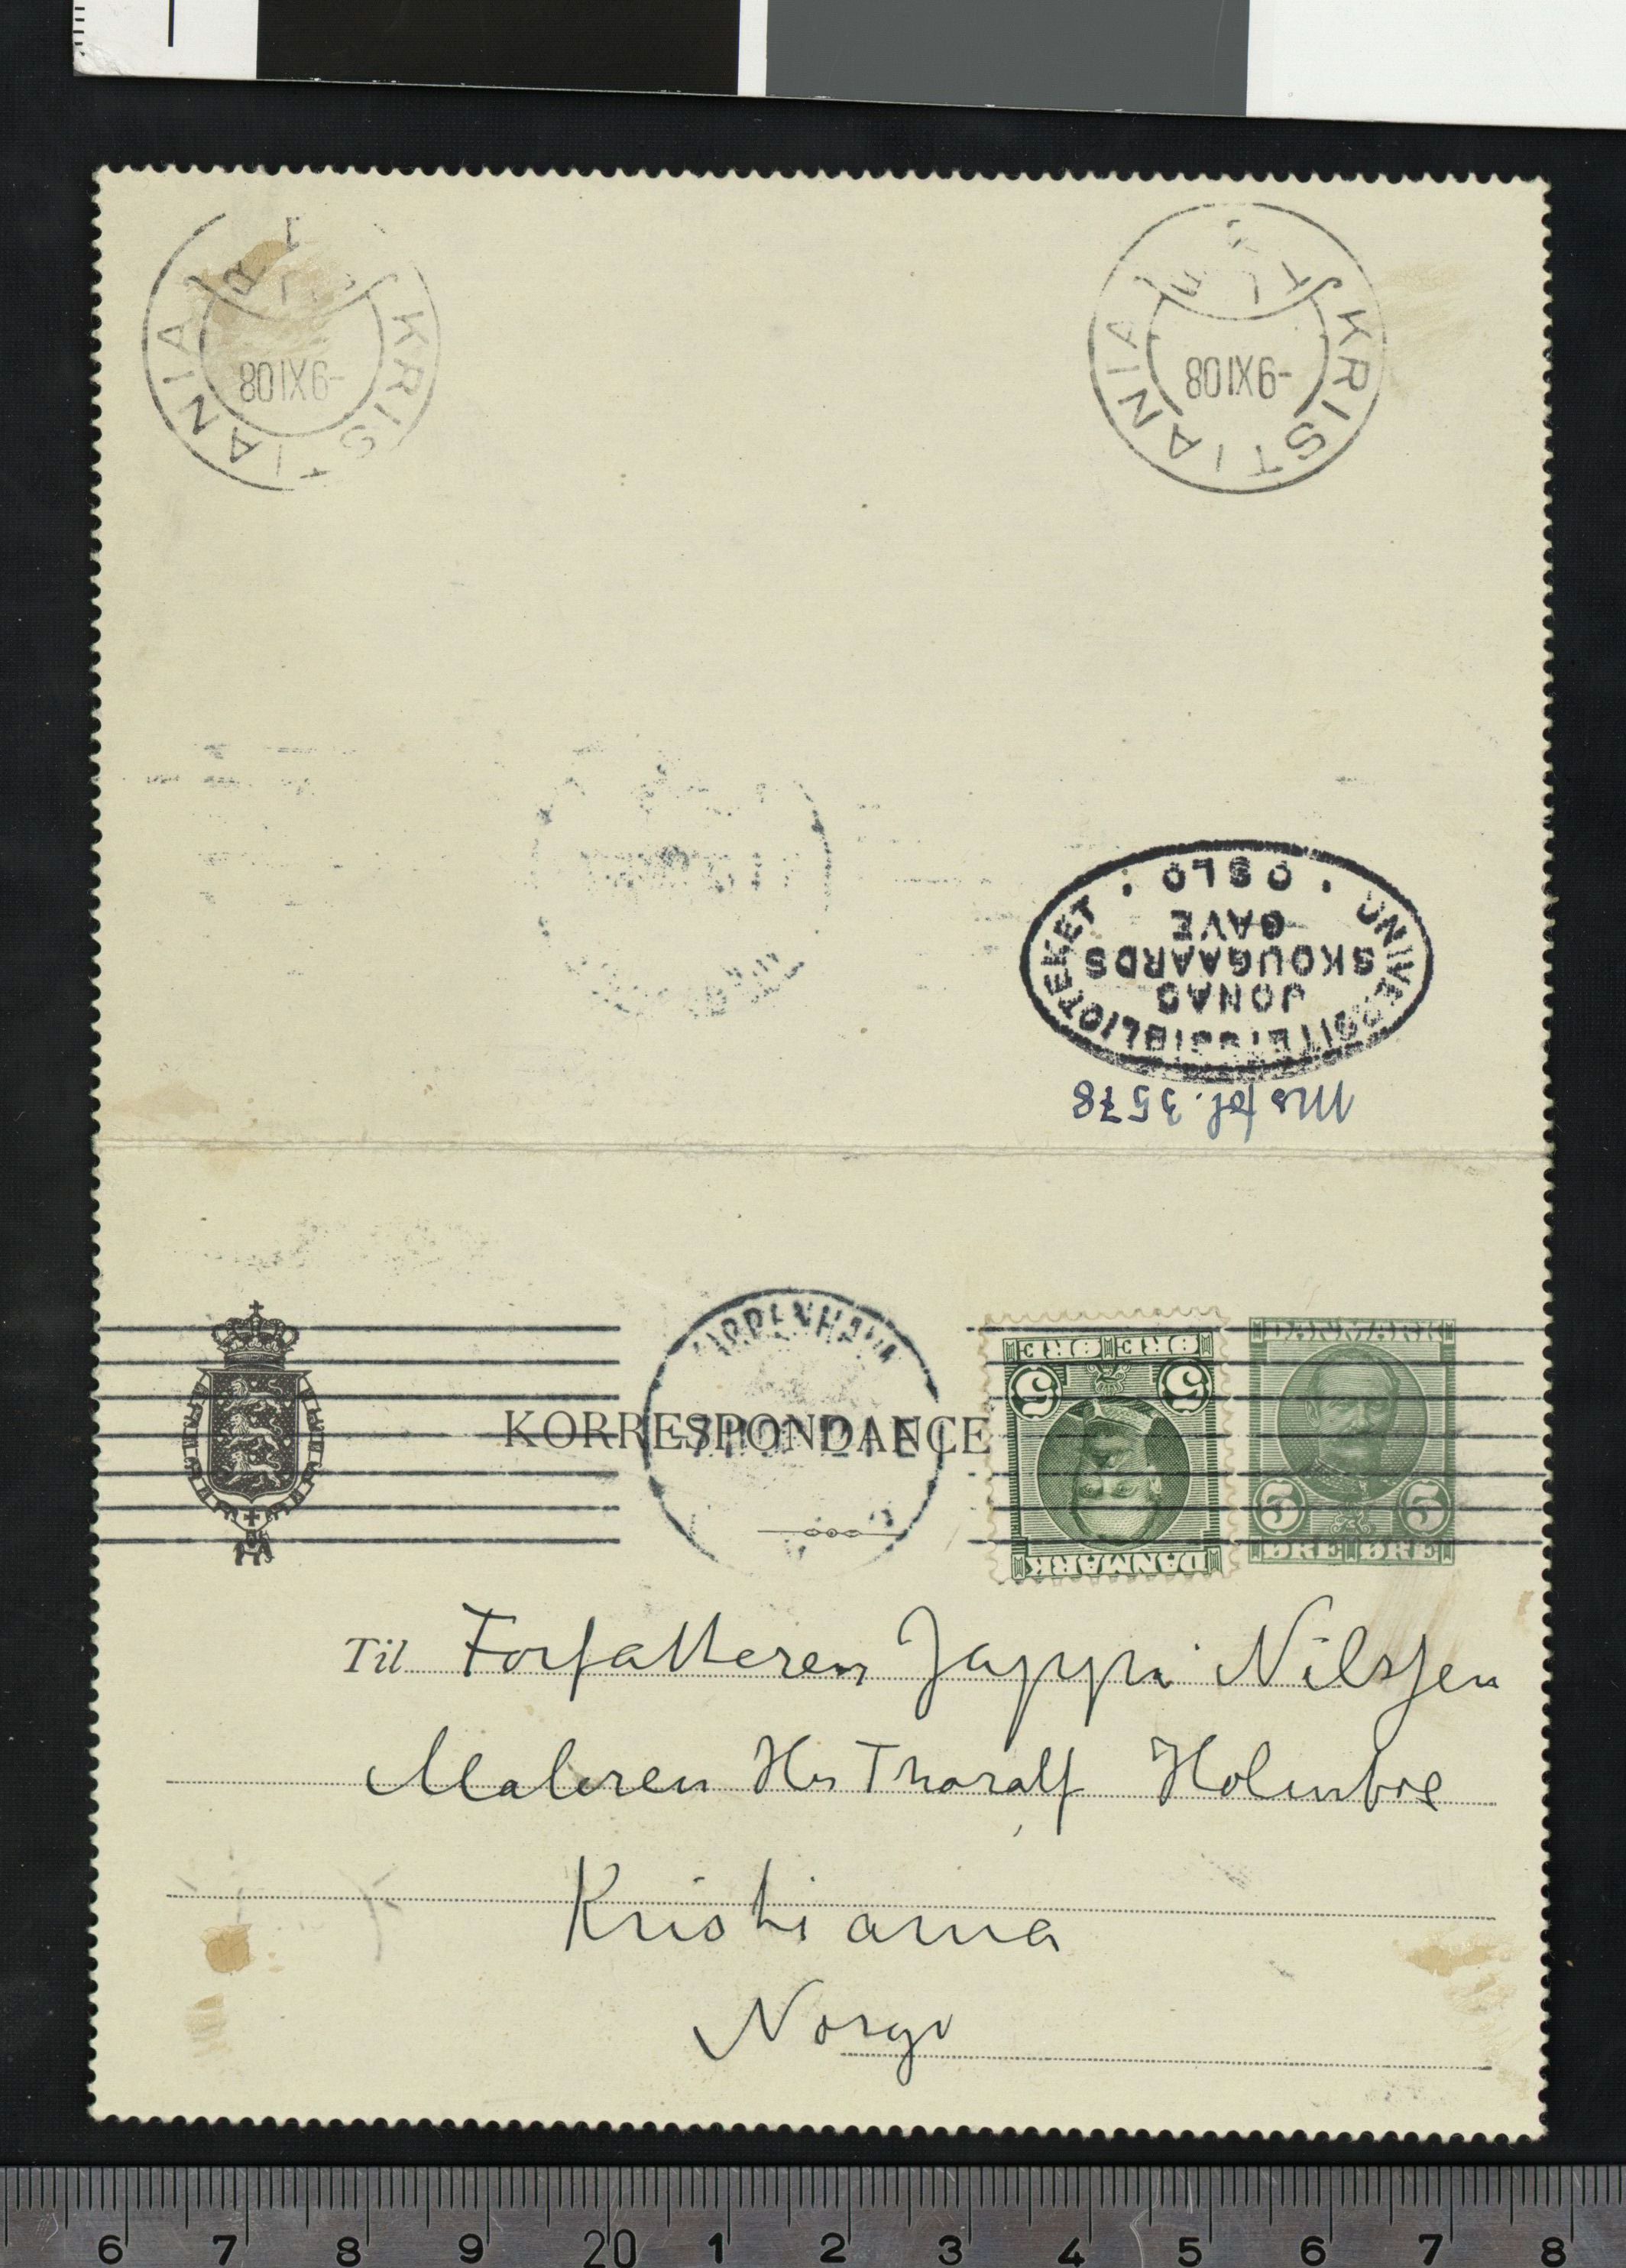 KRISTIANIA
-9XI08
KRISTIANIA
-9XI08
UNIVERSITETSBIBLIOTEKET
• OSLO •
JONAS
SKOUGAARDS
GAVE
Ms fol. 3578
KORRESPONDANCE
KJØBENHAVN
5 5
ØRE ØRE
DANMARK
DANMARK
5 5
ØRE ØRE
Til Forfatteren Jappe Nilssen
Maleren Hr Thoralf Holmboe
Kristiania
Norge
6 7 8 9 20 1 2 3 4 5 6 7 8